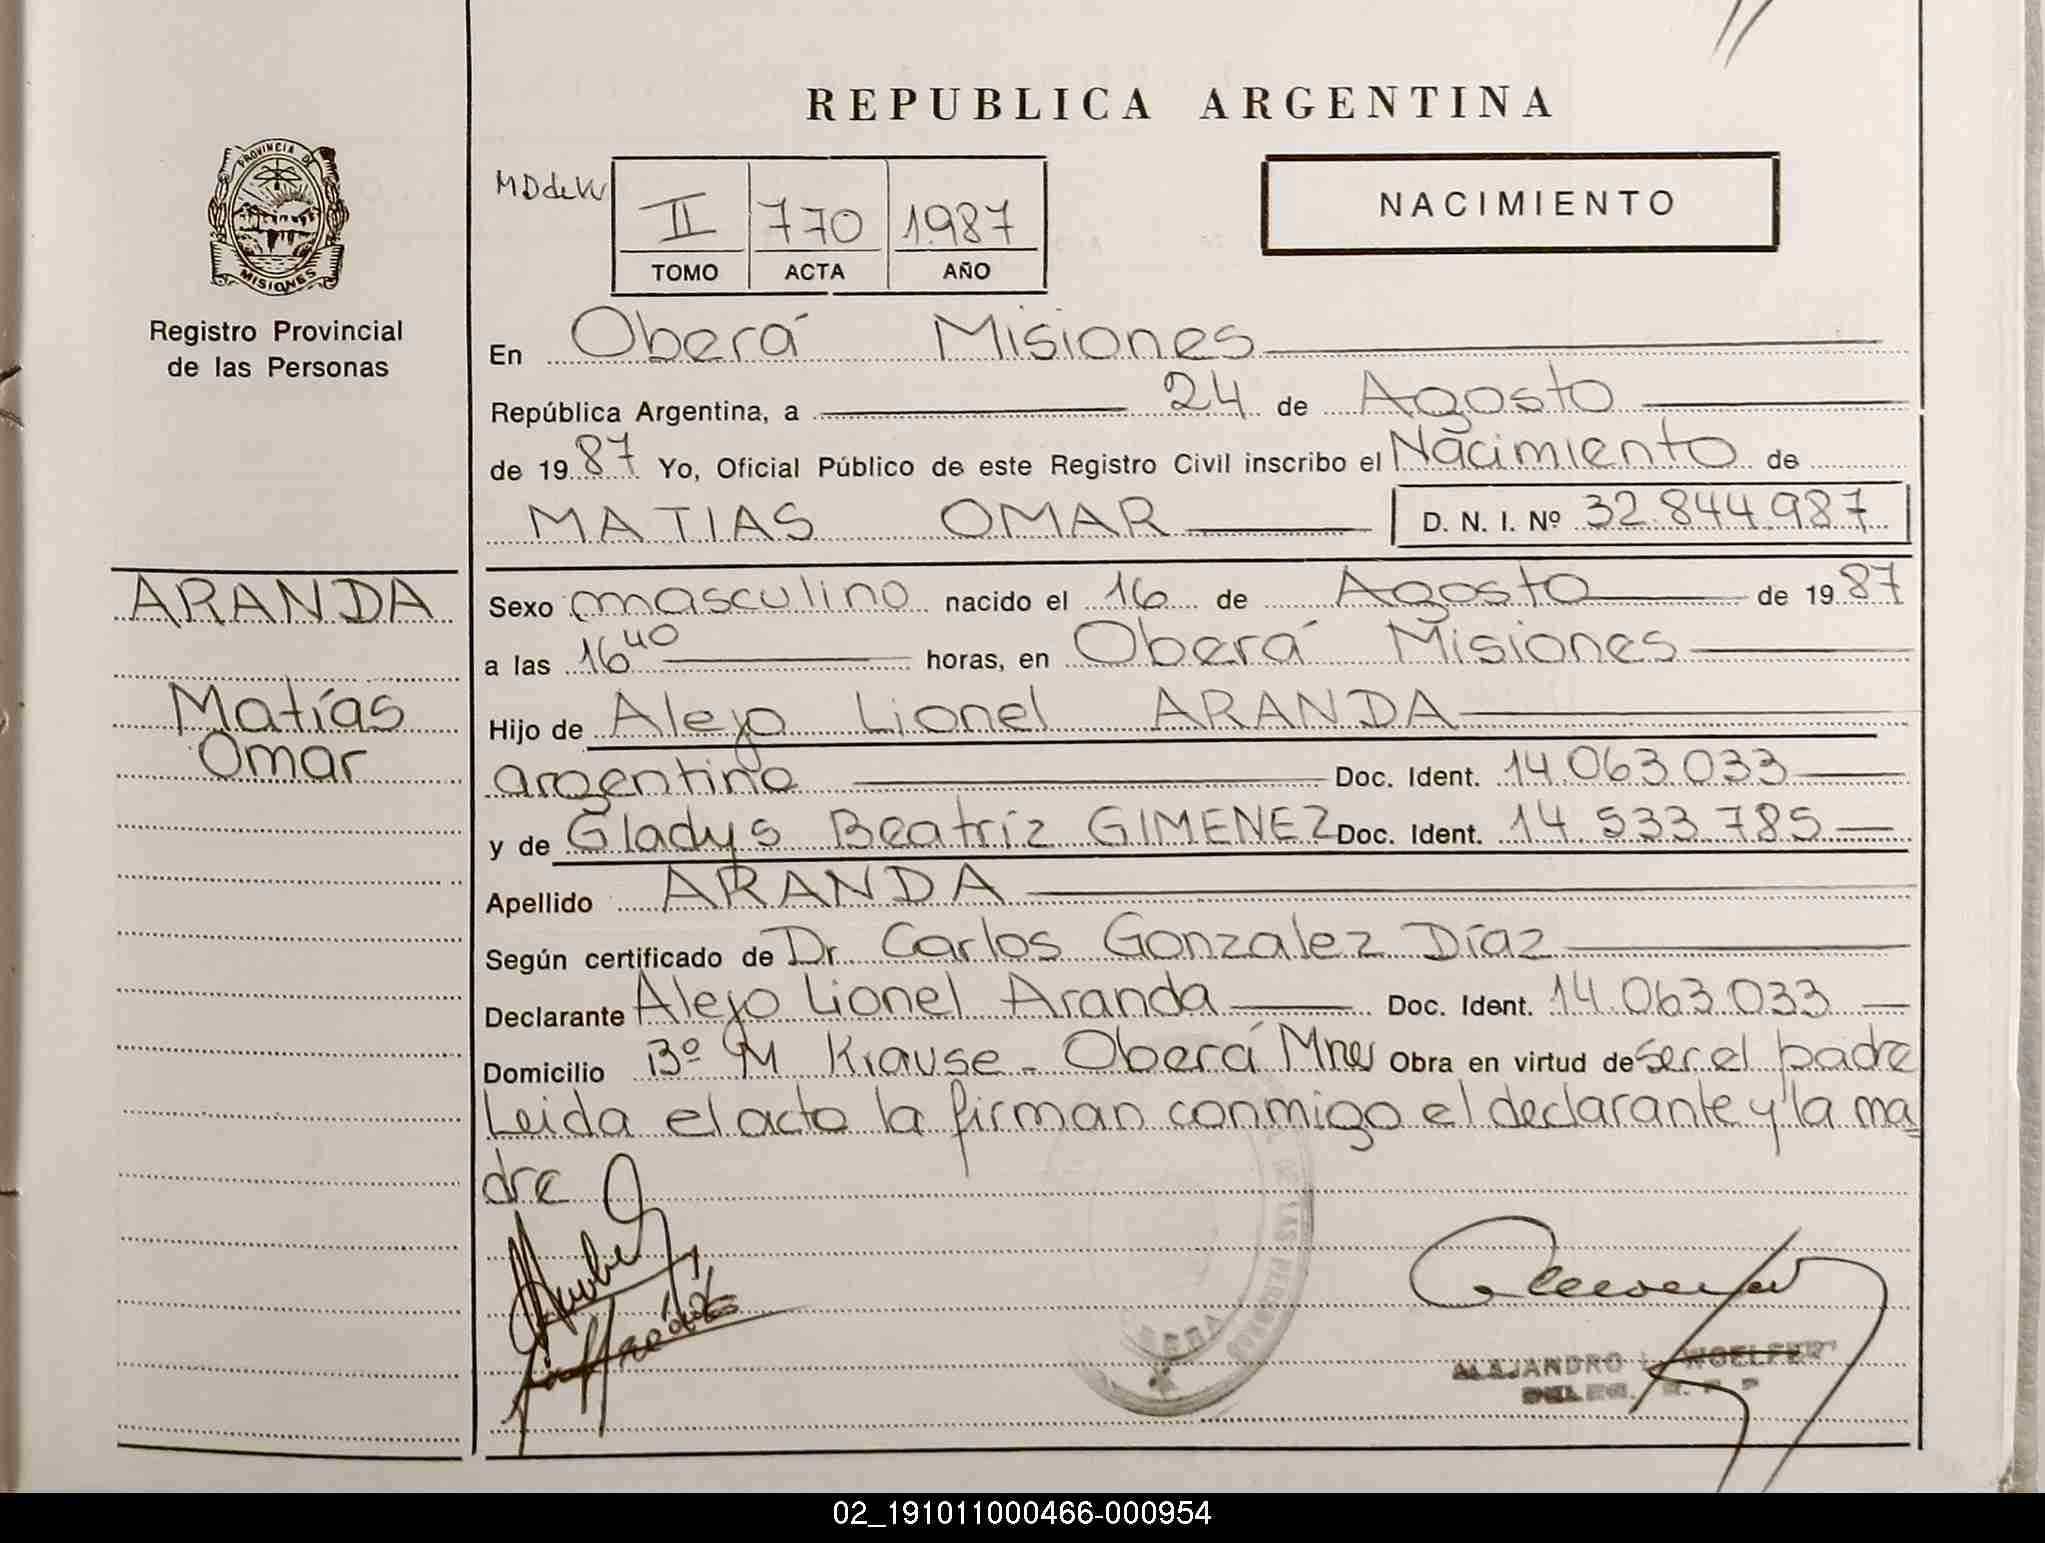 REPUBLICA ARGENTINA
PROVINCIA DE
MISIONES
Registro Provincial
de las Personas
MDdeW
II 770 1987
TOMO ACTA AÑO
NACIMIENTO
En Oberá Misiones
República Argentina, a 24 de Agosto
de 1987 Yo, Oficial Público de este Registro Civil inscribo el Nacimiento de
MATIAS OMAR D. N. I. Nº 32.844.987
ARANDA
Matías
Omar
Sexo masculino nacido el 16 de Agosto de 1987
a las 16 40 horas, en Oberá Misiones
Hijo de Alejo Lionel ARANDA
argentino Doc. Ident. 14.063.033
y de Gladys Beatríz GIMENEZ Doc. Ident. 14.533.785
Apellido ARANDA
Según certificado de Dr. Carlos Gonzalez Díaz
Declarante Alejo Lionel Aranda Doc. Ident. 14.063.033
Domicilio Bº M Krause - Oberá Mnes Obra en virtud de ser el padre
Leida el acto la firman conmigo el declarante y la ma
dre
DE LAS PERSONAS
ALEJANDRO L. WOELFERT
DELEG. R. P. P
02_191011000466-000954